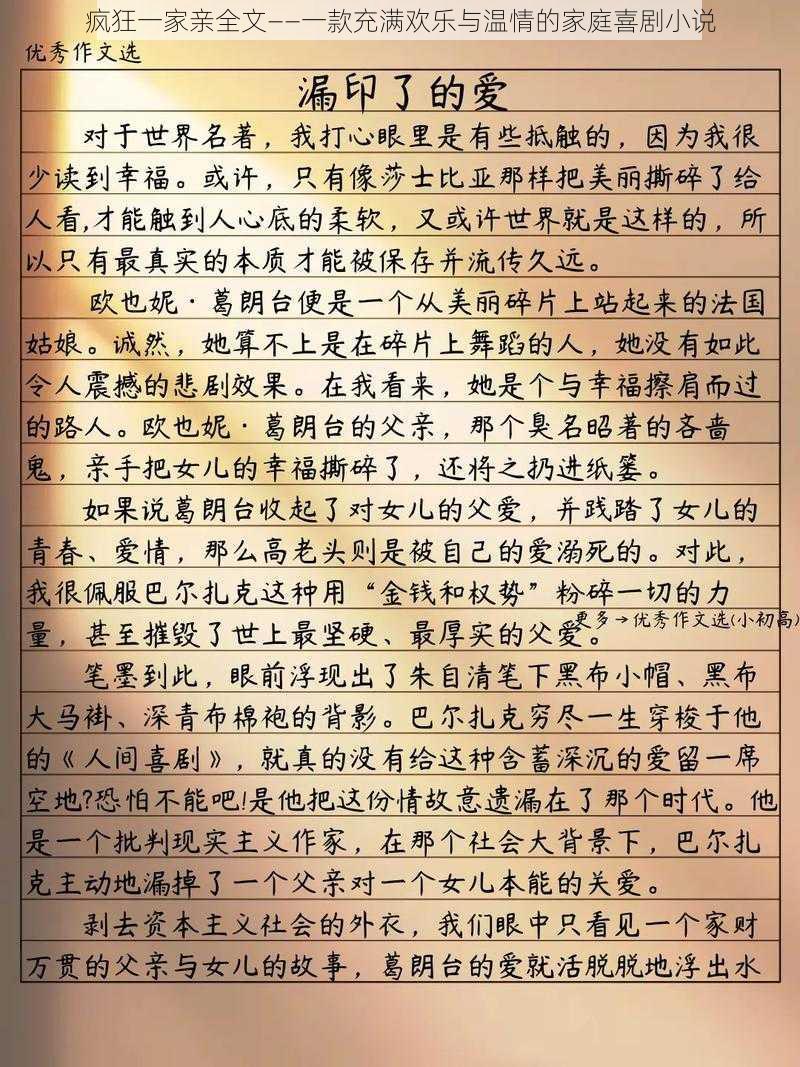 疯狂一家亲全文——一款充满欢乐与温情的家庭喜剧小说
优秀作文选
漏印了的爱
对于世界名著，我打心眼里是有些抵触的，因为我很
少读到幸福。或许，只有像莎士比亚那样把美丽撕碎了给
人看,才能触到人心底的柔软，又或许世界就是这样的，所
以只有最真实的本质才能被保存并流传久远。
欧也妮·葛朗台便是一个从美丽碎片上站起来的法国
姑娘。诚然，她算不上是在碎片上舞蹈的人，她没有如此
令人震撼的悲剧效果。在我看来，她是个与幸福擦肩而过
的路人。欧也妮·葛朗台的父亲，那个臭名昭著的吝啬
鬼，亲手把女儿的幸福撕碎了，还将之扔进纸篓。
如果说葛朗台收起了对女儿的父爱，并践踏了女儿的
青春、爱情，那么高老头则是被自己的爱溺死的。对此，
我很佩服巴尔扎克这种用“金钱和权势”粉碎一切的力
量，甚至摧毁了世上最坚硬、最厚实的父爱。
更多→优秀作文选(小初高)
笔墨到此，眼前浮现出了朱自清笔下黑布小帽、黑布
大马褂、深青布棉袍的背影。巴尔扎克穷尽一生穿梭于他
的《人间喜剧》，就真的没有给这种含蓄深沉的爱留一席
空地?恐怕不能吧!是他把这份情故意遗漏在了那个时代。他
是一个批判现实主义作家，在那个社会大背景下，巴尔扎
克主动地漏掉了一个父亲对一个女儿本能的关爱。
剥去资本主义社会的外衣，我们眼中只看见一个家财
万贯的父亲与女儿的故事，葛朗台的爱就活脱脱地浮出水